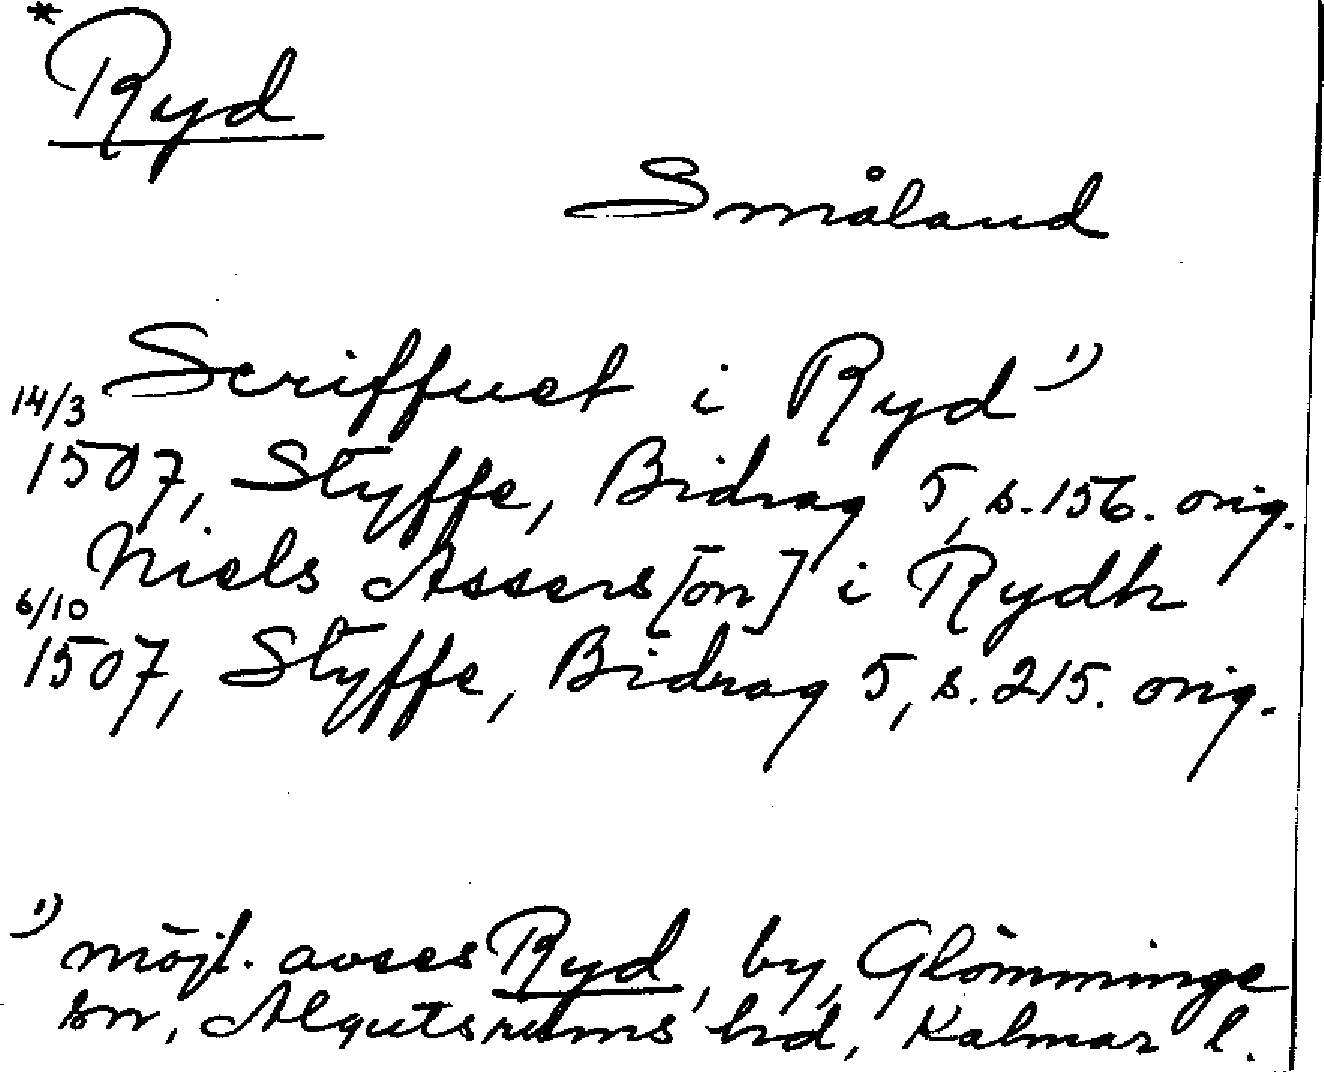 *
Ryd
Småland
Scriffuet i Ryd ¹⁾
14/3
1507, Styffe, Bidrag 5, s. 156. orig.
Niels Assers[on] i Rydh
6/10
1507, Styffe, Bidrag 5, s. 215. orig.
¹⁾ möjl. avses Ryd, by, Glömminge
sn, Algutsrums hd, Kalmar l.